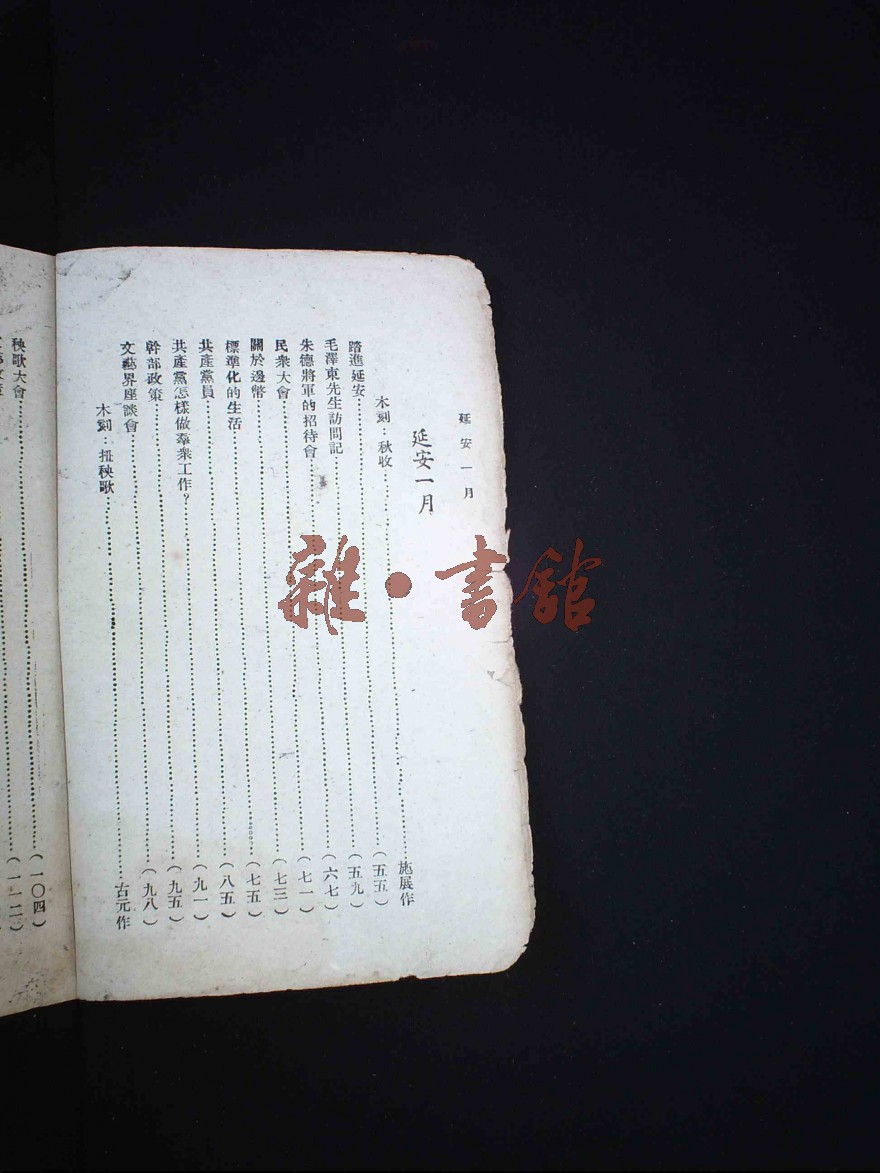 延安一月
延安一月
木刻：秋收……施展作
踏進延安……（五五）
毛澤東先生訪問記……（五九）
朱德將軍的招待會……（六七）
民衆大會……（七一）
關於邊幣……（七三）
標準化的生活……（七五）
共產黨員……（八五）
共產黨怎樣做羣衆工作？……（九一）
幹部政策……（九五）
文藝界座談會……（九八）
木刻：扭秧歌……古元作
秧歌大會……（一〇四）
……（一一二）
雜·書館